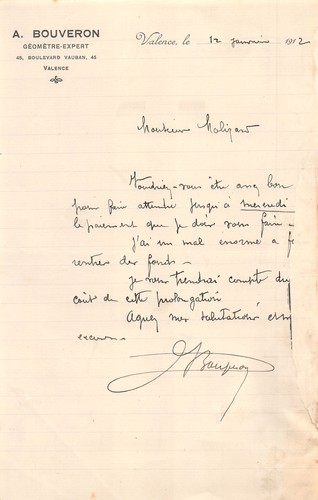 A. BOUVERON
GÉOMÈTRE-EXPERT
46, BOULEVARD VAUBAN, 46
VALENCE
Valence, le 12 janvier 1912
Monsieur
Voudriez-vous être assez bon
pour faire attendre jusqu'à mercredi
le paiement que je dois vous faire -
J'ai un mal énorme à f
rentrer des fonds -
Je vous tiendrai compte du
coût de cette prolongation
Agréez mes salutations
excuses.